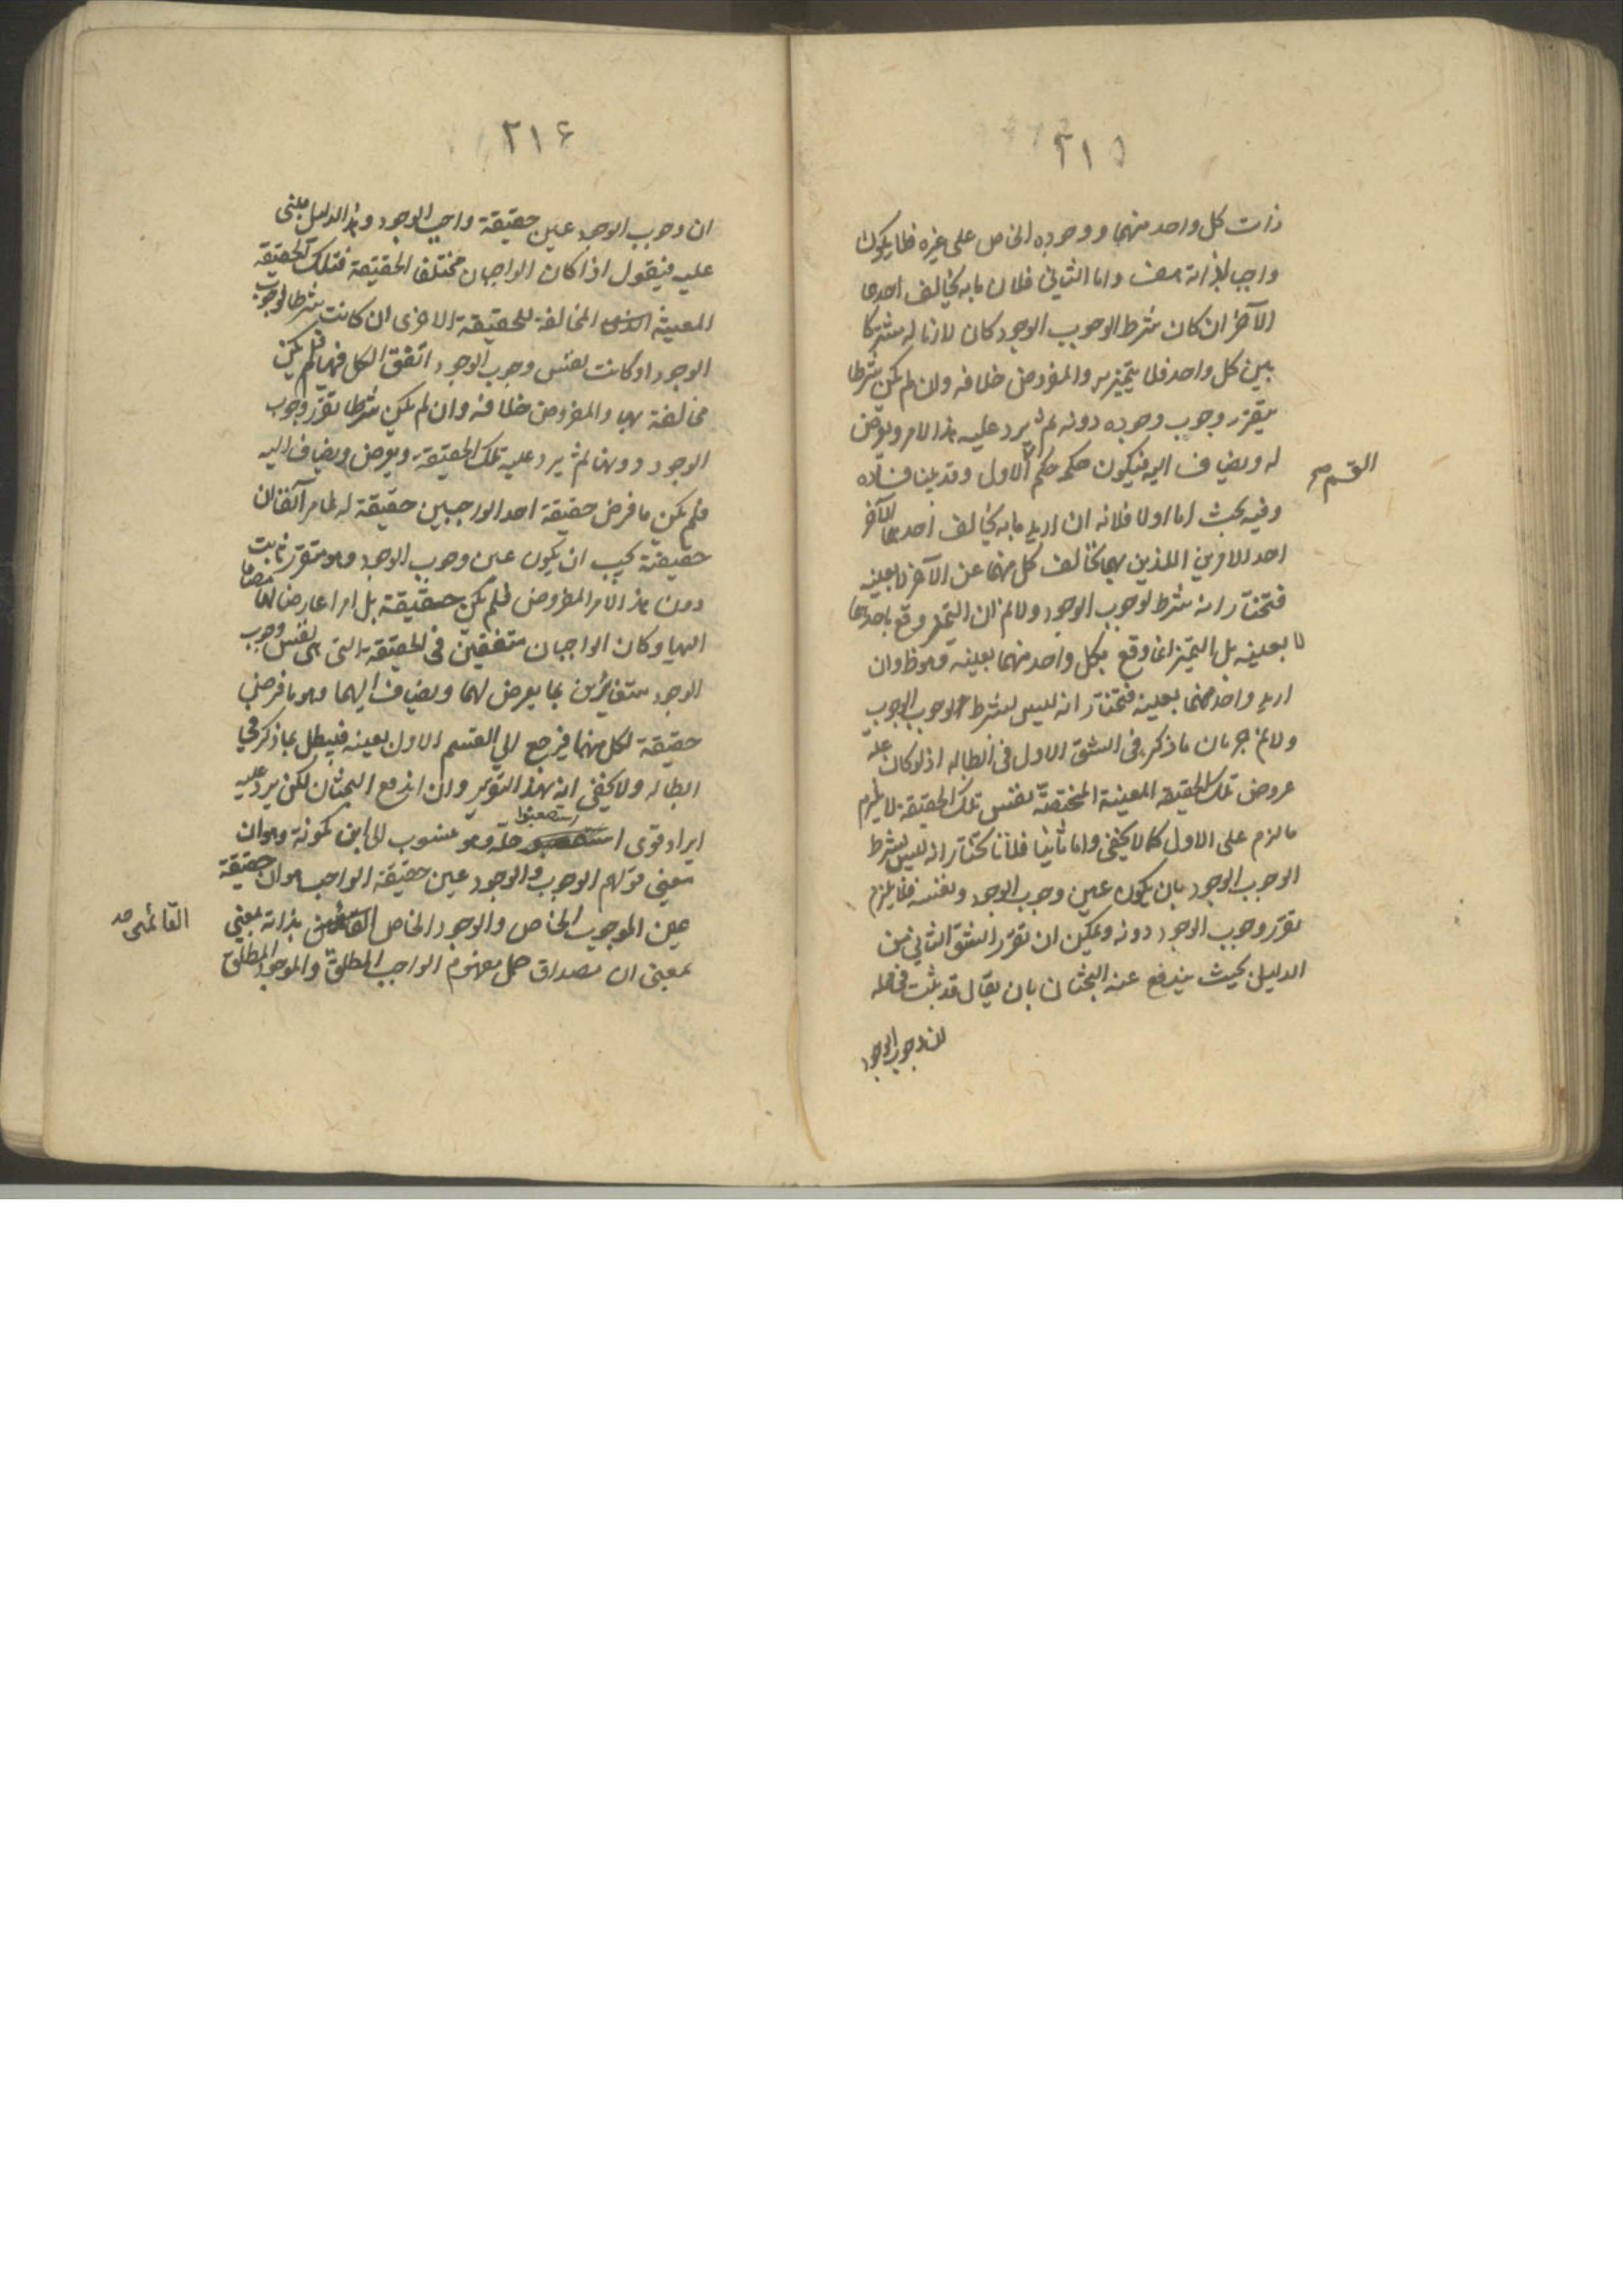 ٢١٥
ذات كل واحد منهما ووجوده الخاص على غيره فلا يكون
واجبا لذاته هف واما الثاني فلان ما به يخالف احدهما
الآخر ان كان شرط الوجوب الوجود كان لازما له مشتركا
بين كل واحد فلا يتميز به والمفروض خلافه وان لم يكن شرطا
يتقرر وجوب وجوده دونه ثم يرد عليه هذا الامر ويعرض
له ويضاف اليه فيكون حكمه حكم الاول وقد بينا فساده
القسم صح
وفيه بحث اما اولا فلانه ان اريد ما به يخالف احدهما الآخر
احد الامرين اللذين بهما تخالف كل منهما عن الآخر لا بعينه
فنختار انه شرط لوجوب الوجود ولا نم ان التميز وقع باحدهما
لا بعينه بل التميز انما وقع بكل واحد منهما بعينه وهو ظ وان
اريد واحد منهما بعينه فنختار انه ليس بشرط لوجوب الوجوب
ولا نم جريان ما ذكره في الشق الاول في ابطاله اذ لو كان علة
عروض تلك الحقيقة المعينة المختصة نفس تلك الحقيقة لا يلزم
ما لزم على الاول كما لا يخفى واما ثانيا فلانا نختار انه ليس بشرط
الوجوب الوجود بان يكون عين وجوب الوجود ونفسه فلا يلزم
تقرر وجوب الوجود دونه ويمكن ان نقرر الشق الثاني من
الدليل بحيث يندفع عنه البحثان بان يقال قد ثبت في محله
ان وجوب الوجود
٢١٤
ان وجوب الوجود عين حقيقة واجب الوجود وهذا الدليل مبني
عليه فيقول اذا كان الواجبان مختلفا الحقيقة فتلك الحقيقة
المعينة المخالفة للحقيقة الاخرى ان كانت شرطا لوجوب
الوجود او كانت نفس وجوب الوجود اتفق الكل فيها فلم يكن
مخالفة بها والمفروض خلافه وان لم يكن شرطا تقرر وجوب
الوجود دونها ثم يرد عليه تلك الحقيقة ويعرض ويضاف اليه
فلم يكن ما فرض حقيقة احد الواجبين حقيقة له لما مر آنفا ان
حقيقته يجب ان يكون عين وجوب الوجود وهو متقرر ثابت
دون هذا الامر المفروض فلم يكن حقيقة بل امرا عارضا لها مضافا
اليها وكان الواجبان متفقين في الحقيقة التي هي نفس وجوب
الوجود متغايرين بما يعرض لهما ويضاف اليهما وهو ما فرض
حقيقة لكل منهما فيرجع الى القسم الاول بعينه فيبطل بما ذكر في
ابطاله ولا يخفى انه بهذا التقرير وان اندفع البحثان لكن يرد عليه
ايراد قوى استصعبوا حله وهو منسوب الى ابن كمونة وهو ان
معنى قولهم الوجوب والوجود عين حقيقة الواجب هو ان حقيقة
عين الموجوب الخاص والوجود الخاص القائمين بذاته بمعنى
القائمين صح
بمعنى ان مصداق حمل مفهوم الواجب المطلق والموجود المطلق